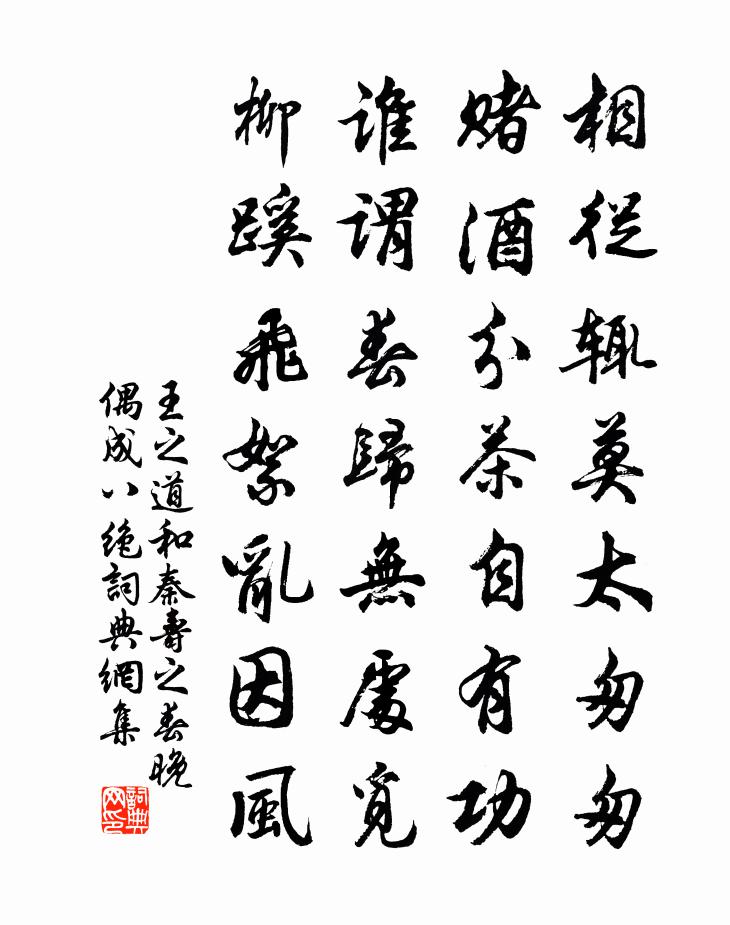 相從輒莫太匆匆
賭酒分茶自有功
誰謂春歸無處覓
柳蹊飛絮亂因風
王之道和秦壽之春晚
偶成八絶詞典網集
詞典网印